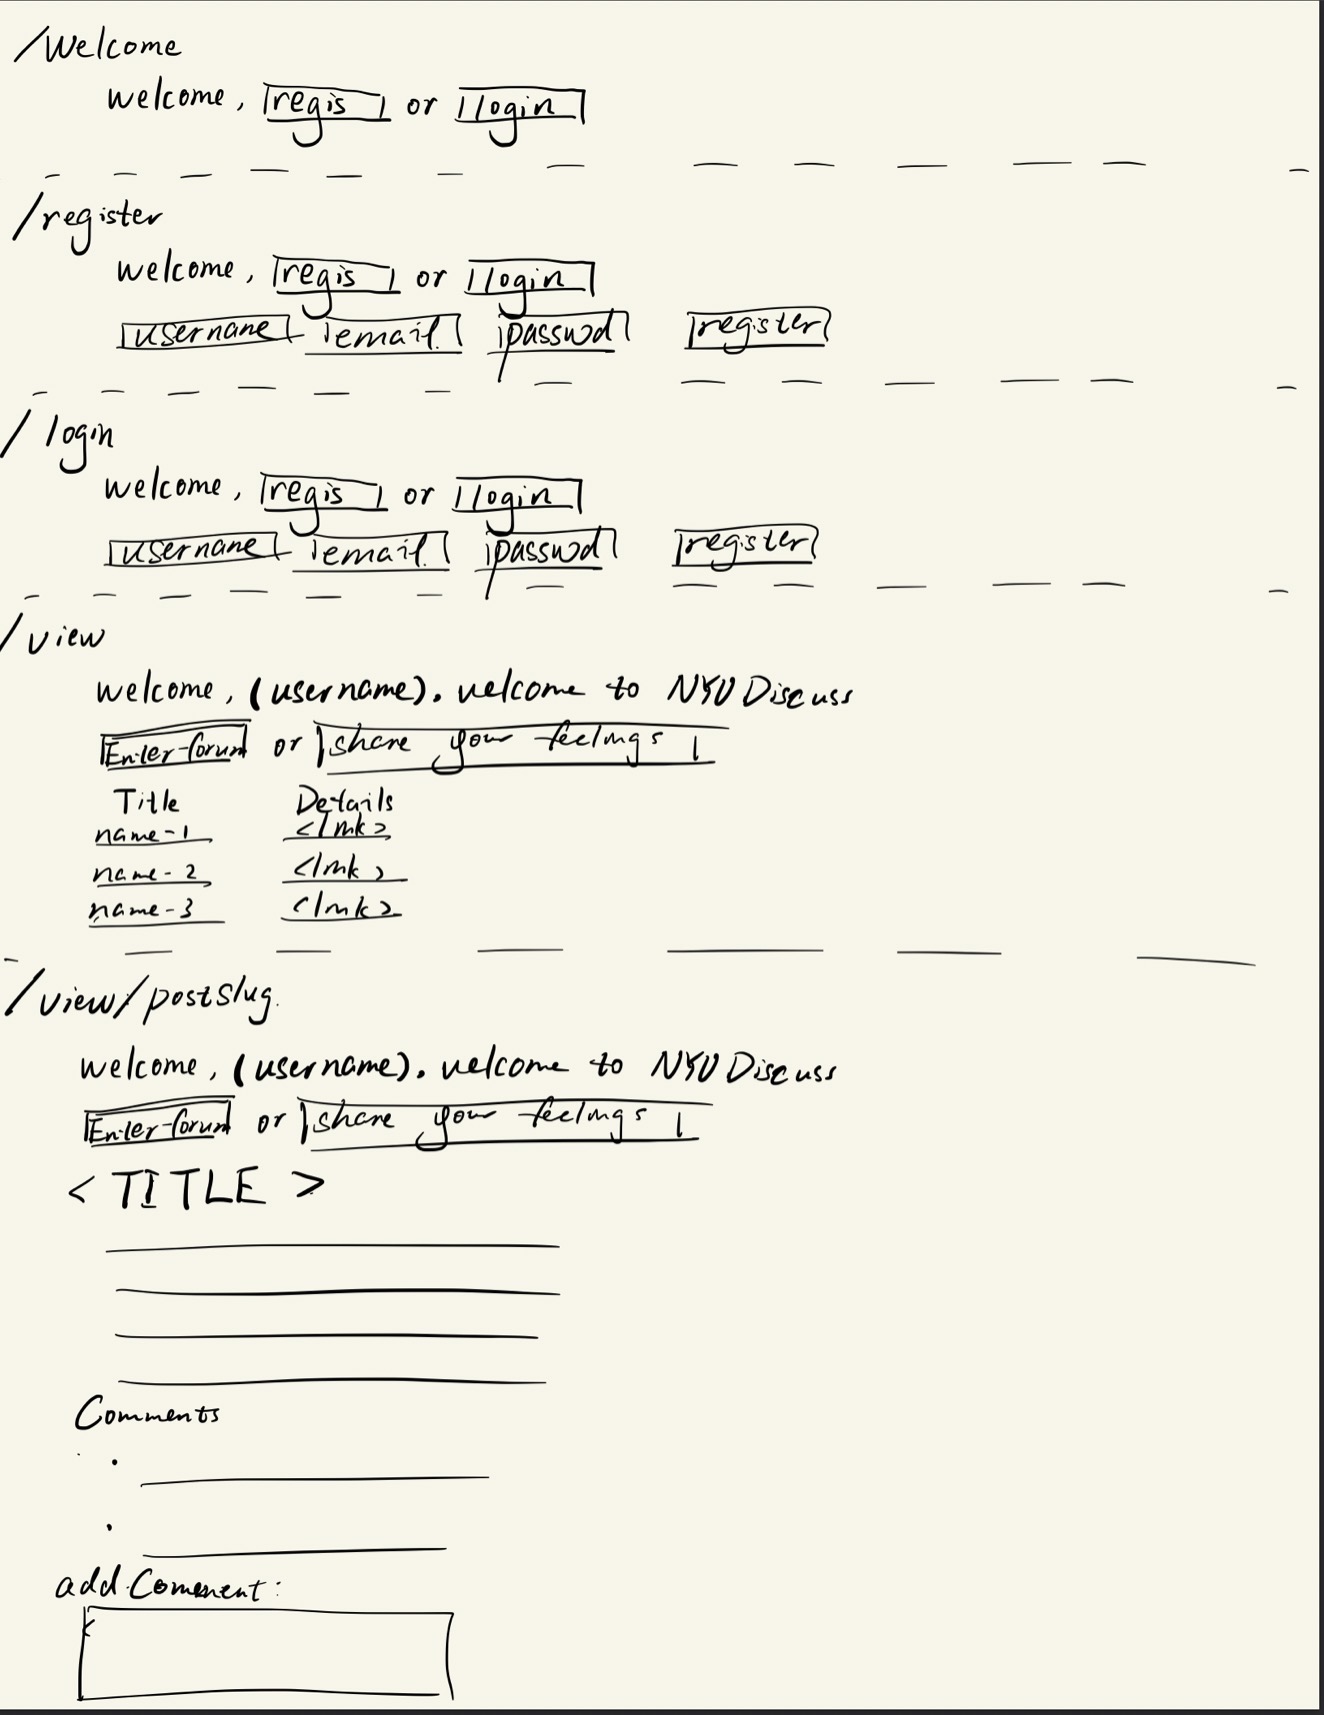 /Welcome
welcome, regis or login
/register
welcome, regis or login
username email passwd register
/login
welcome, regis or login
username email passwd register
/view
welcome, (username). welcome to NYU Discuss
Enter-forum or share your feelings
Title Details
name-1 <link>
name-2 <link>
name-3 <link>
/view/postSlug.
welcome, (username). welcome to NYU Discuss
Enter-forum or share your feelings
< TITLE >
Comments
add Comment: